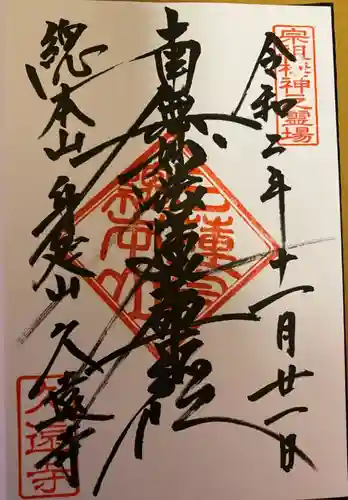 宗祖棲神之霊場
令和二年十一月廿一日
南無妙法蓮華経
総本山身延山久遠寺
久遠寺